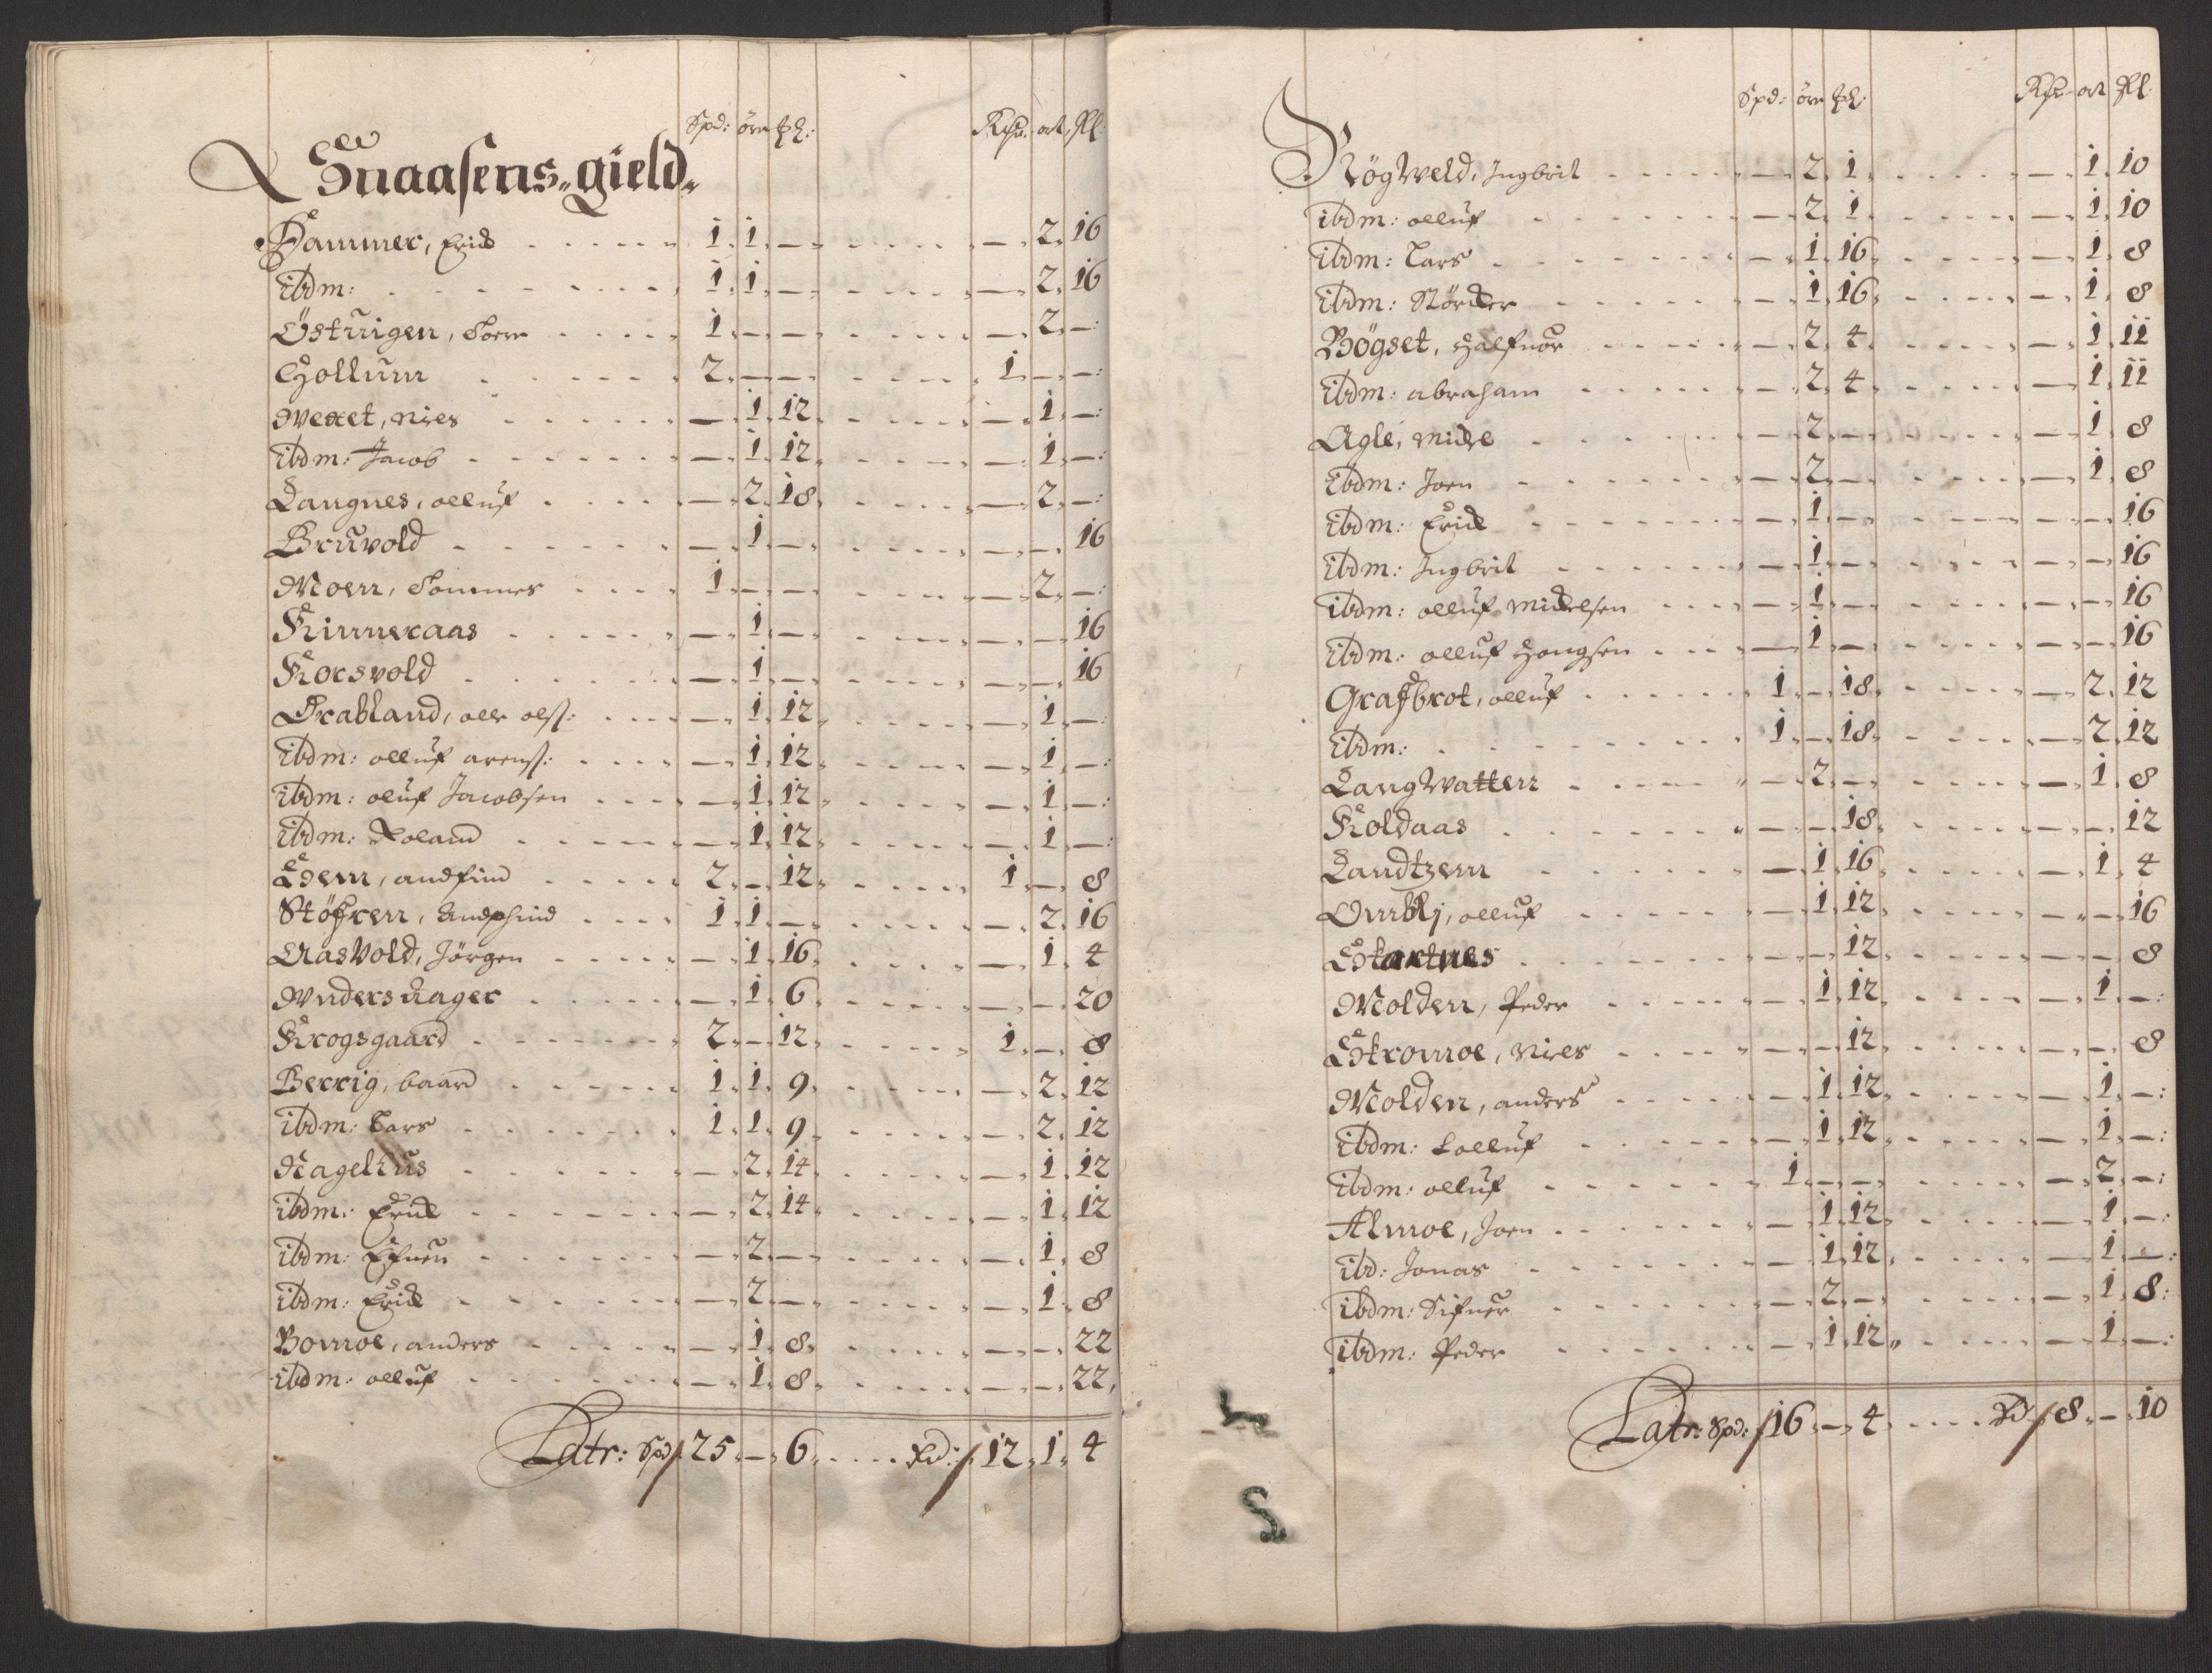 Spd: öre ħℓ: Rixdr. ort. ſkl:
Snaasens gield
Hammer, Erich 1. 1. — — 2. 16
ibdm: 1. 1. — — 2. 16
Östüigen, Soern 1. — — — 2. —
Hollum 2. — — 1. — —
Wexet, Niels — 1. 12. — 1. —
ibdm: Jacob — 1. 12. — 1. —
Langnes, olluf — 2. 18. — 2. —
Bruvold — 1. — — — 16
Moen, Sommer 1. — — — 2. —
Finneraas — 1. — — — 16
Forsvold — 1. — — — 16
Grabland, olle olss: — 1. 12. — 1. —
ibdm: olluf arenss: — 1. 12. — 1. —
ibdm: oluf Jacobsen — 1. 12. — 1. —
ibdm: Roland — 1. 12. — 1. —
Edem, andfind 2. — 12. 1. — 8
Stöfren, Andphind 1. 1. — — 2. 16
Aasvold, Jörgen — 1. 16. — 1. 4
Wndersaager — 1. 6. — — 20
Krogsgaard 2. — 12. 1. — 8
Berrig, baard 1. 1. 9. — 2. 12
ibdm: Lars 1. 1. 9. — 2. 12
Hagelhus — 2. 14. — 1. 12
ibdm: Erich — 2. 14. — 1. 12
ibdm: — 2. — — 1. 8
ibdm: Erich — 2. — — 1. 8
Bomoe, anders — 1. 8. — — 22
ibdm: olluf — 1. 8. — — 22
Latr: Spd/ 25. — 6. Rd:/ 12. 1. 4
Spd: öre ħℓ: Rixdr. ort ſkl:
RögWeld, Ingbrit — 2. 1. — 1. 10
ibdm: olluf — 2. 1. — 1. 10
ibdm: Lars — 1. 16. — 1. 8
ibdm: Störcker — 1. 16. — 1. 8
Bögset, Halfuor — 2. 4. — 1. 11
ibdm: abraham — 2. 4. — 1. 11
Agle, — 2. — — 1. 8
ibdm: Joen — 2. — — 1. 8
ibdm: Erich — 1. — — — 16
ibdm: Ingbrit — 1. — — — 16
ibdm: olluf Mickelsen — 1. — — — 16
ibdm: olluf — 1. — — — 16
Grafbrot, olluf 1. — 18. — 2. 12
ibdm: 1. — 18. — 2. 12
LangWatten — 2. — — 1. 8
Koldaas — — 18. — — 12
Landtzem — 1. 16. — 1. 4
Ombli, olluf — 1. 12. — — 16
Startnes — — 12. — — 8
Molden, Peder — 1. 12. — 1. —
Stromoe, Niels — — 12. — — 8
Molden, anders — 1. 12. — 1. —
ibdm: — 1. 12. — 1. —
ibdm: olluf 1. — — — 2. —
Almoe, Joen — 1. 12. — 1. —
ibd: Jonas — 1. 12. — 1. —
ibdm: Sifuer — 2. — — 1. 8
ibdm: Peder — 1. 12. — 1. —
Latr: Spd:/ 16. — 4. Rd/ 8. — 10